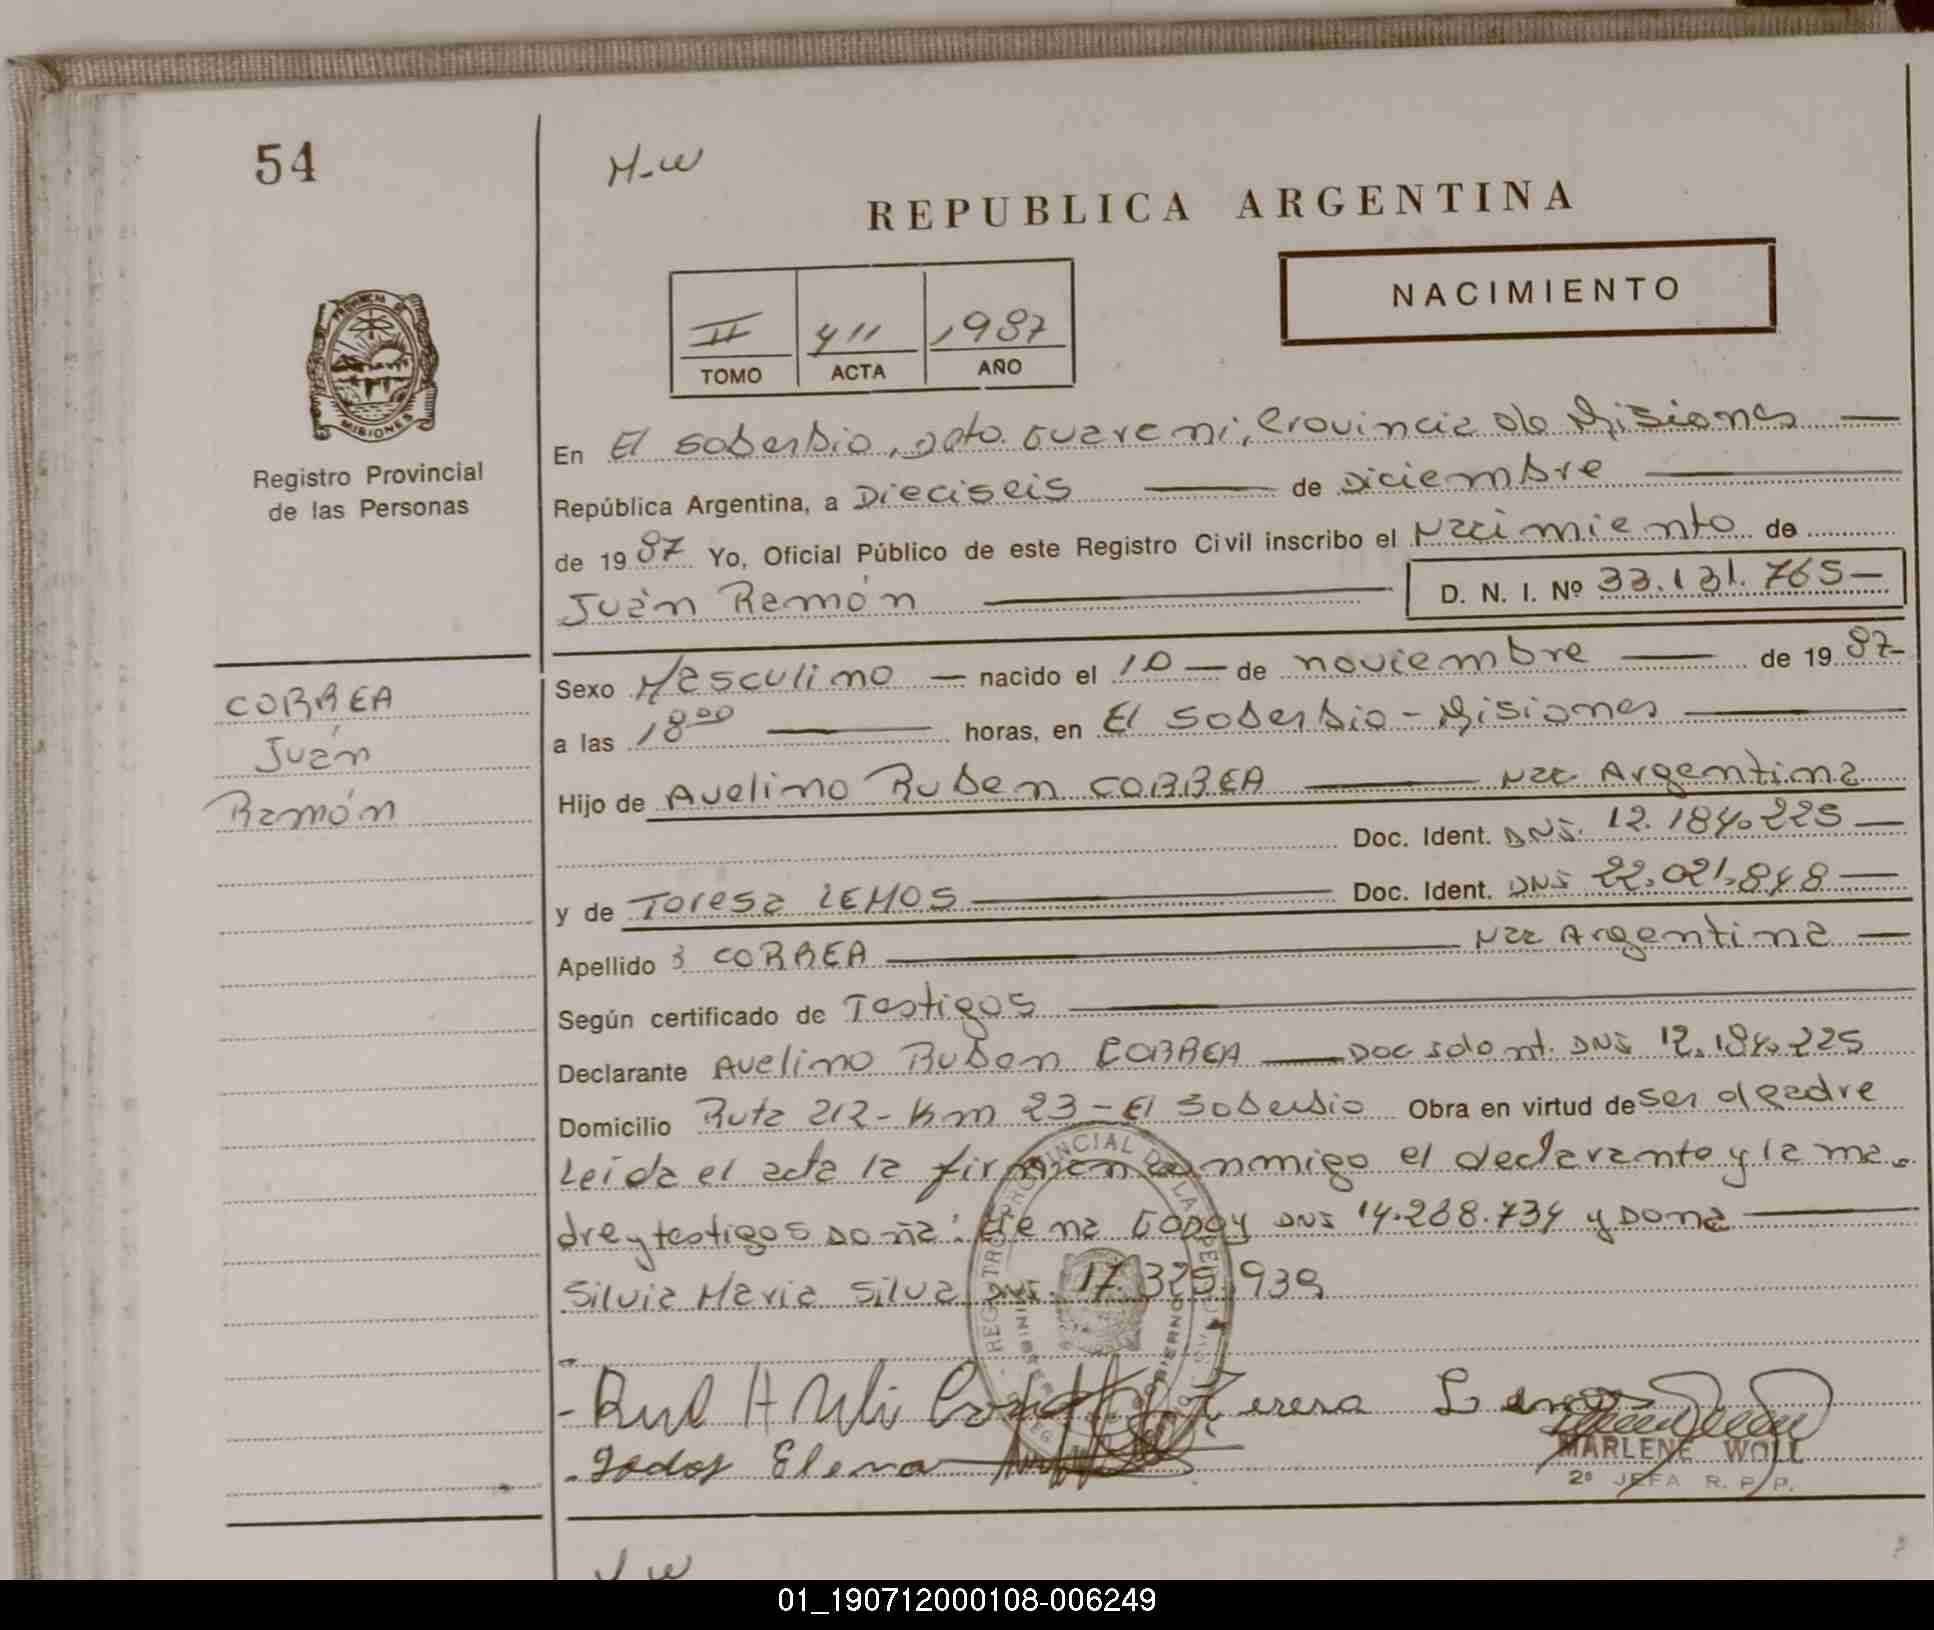 54
M-W
REPUBLICA ARGENTINA
NACIMIENTO
II 411 1987
TOMO ACTA AÑO
PROVINCIA DE
MISIONES
Registro Provincial
de las Personas
En El Soberbio, Dpto. Guarani, Provincia de Misiones
República Argentina, a Dieciseis de Diciembre
de 1987 Yo, Oficial Público de este Registro Civil inscribo el Nacimiento de
Juán Ramón D. N. I. Nº 33.131.765-
CORREA
Juán
Ramón
Sexo Masculino nacido el 10 de noviembre de 1987-
a las 18⁰⁰ horas, en El Soberbio - Misiones
Hijo de Avelino Ruben CORREA Nac Argentina
Doc. Ident. DNI. 12.184.225
y de Teresa LEMOS Doc. Ident. DNI 22.021.848
Apellido CORREA Nac Argentina
Según certificado de Testigos
Declarante Avelino Ruben CORREA Doc Ident. DNI 12.184.225
Domicilio Ruta 212 - Km 23 - El Soberbio Obra en virtud de ser el padre
Leida el acta la firman conmigo el declarante y la ma-
dre y testigos Doña: Elena DNI 14.268.734 y Doña
Silvia Maria Silva DNI. 17.325.939
Teresa Lemos
Elena
MARLENE WOLL
2º JEFA R. P. P.
01_190712000108-006249